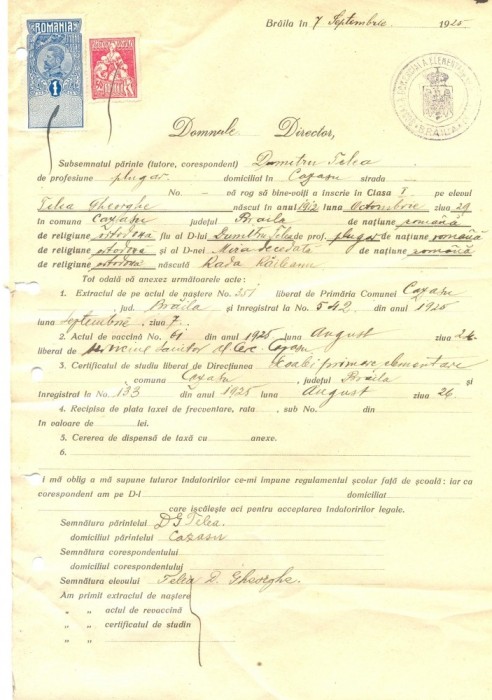 Brăila în 7 Septembrie 1925
ROMANIA
1
BRĂILA
Domnule Director,
Subsemnatul părinte (tutore, corespondent) Dumitru Telea
de profesiune plugar domiciliat în Cazasu strada
No. — vă rog să bine-voiți a înscrie în Clasa I pe elevul
Telea Gheorghe născut în anul 1912 luna Octombrie ziua 29
în comuna Cazasu județul Braila de națiune română
de religiune ortodoxă fiu al D-lui Dumitru Telea de prof. plugar de națiune română
de religiune ortodoxă și al D-nei decedată de națiune română
de religiune ortodoxă născută Rada
Tot odată vă anexez următoarele acte:
1. Extractul de pe actul de naștere No. 251 liberat de Primăria Comunei Cazasu
, jud. Brăila și înregistrat la No. 542 din anul 1925
luna Septembrie, ziua 7.
2. Actul de vaccină No. 61 din anul 1925 luna August ziua 26
liberat de sanitar al Cazasu
3. Certificatul de studii liberat de Direcțiunea Școalei primare elementare
, comuna Cazasu, județul Brăila și
înregistrat la No. 133 din anul 1925 luna August ziua 26.
4. Recipisa de plata taxei de frecventare, rata , sub No. din
în valoare de lei.
5. Cererea de dispensă de taxă cu anexe.
Mă oblig a mă supune tuturor îndatoririlor ce-mi impune regulamentul școlar față de școală: iar ca
corespondent am pe D-l domiciliat
care iscălește aci pentru acceptarea îndatoririlor legale.
Semnătura părintelui D. G. Telea.
domiciliul părintelui Cazasu
Semnătura corespondentului
domiciliul corespondentului
Semnătura elevului Telea D. Gheorghe.
Am primit extractul de naștere
„ „ actul de revaccină
„ „ certificatul de studii
„ „